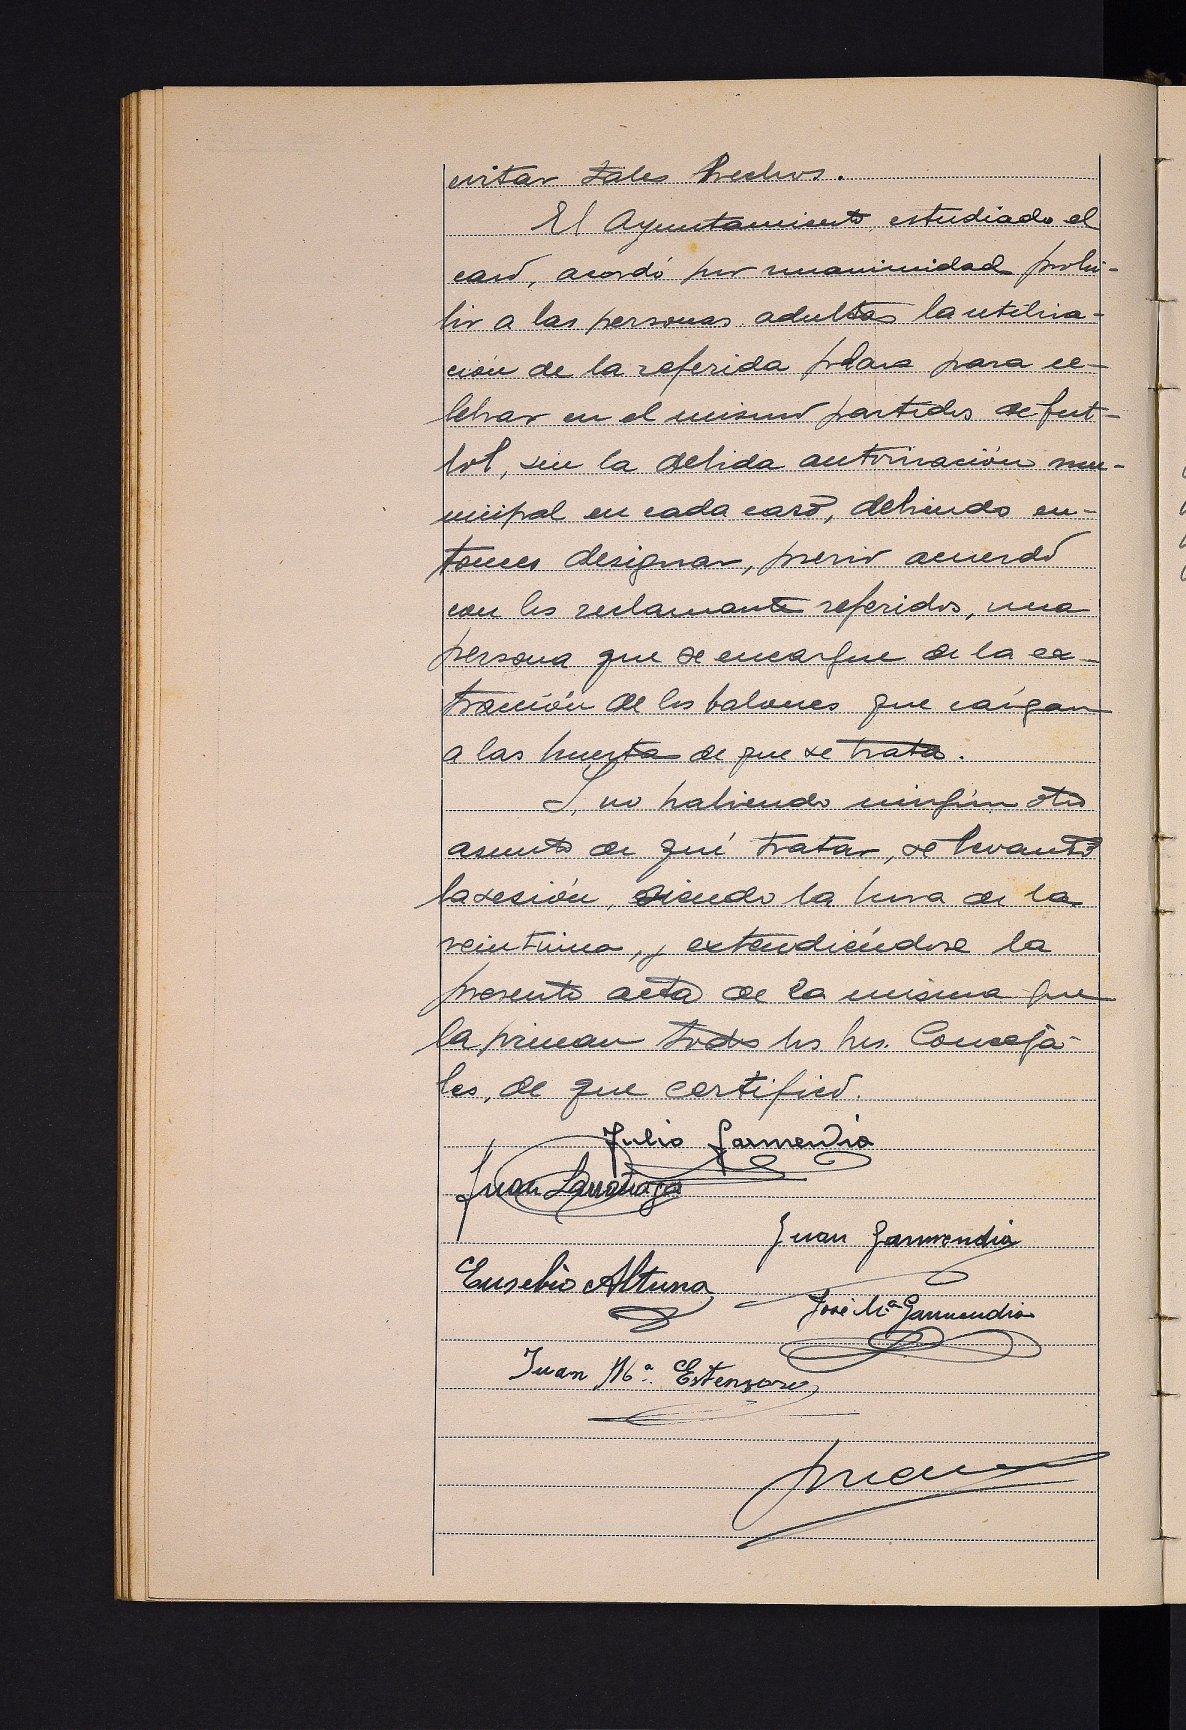 evitar tales hechos.
El Ayuntamiento, estudiado el
caso, acordó por unanimidad prohi-
bir a las personas adultas la utiliza-
ción de la referida plaza para ce-
lebrar en el mismo partidos de fut-
bol, sin la debida autorización mu-
nicipal en cada caso, debiendo en-
tonces designar, previo acuerdo
con los reclamante referidos, una
persona que se encargue de la ex-
tracción de los balones que caigan
a las huerta de que se trata.
Y, no habiendo ningún otro
asunto de qué tratar, se levantó
la sesión, siendo la hora de la
veintiuna, y extendiéndose la
presente acta de la misma que
la firman todo los Srs. Conceja-
les, de que certifico.
Julio Garmendia
Juan Larrañaga
Juan Garmendia
Eusebio Altuna
José Mª Garmendia
Juan Mª. Estensoro